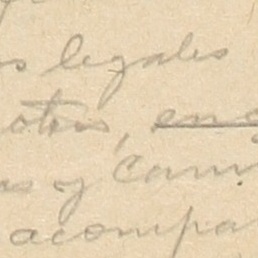 s legales
otros, en
as y Cam
acompa